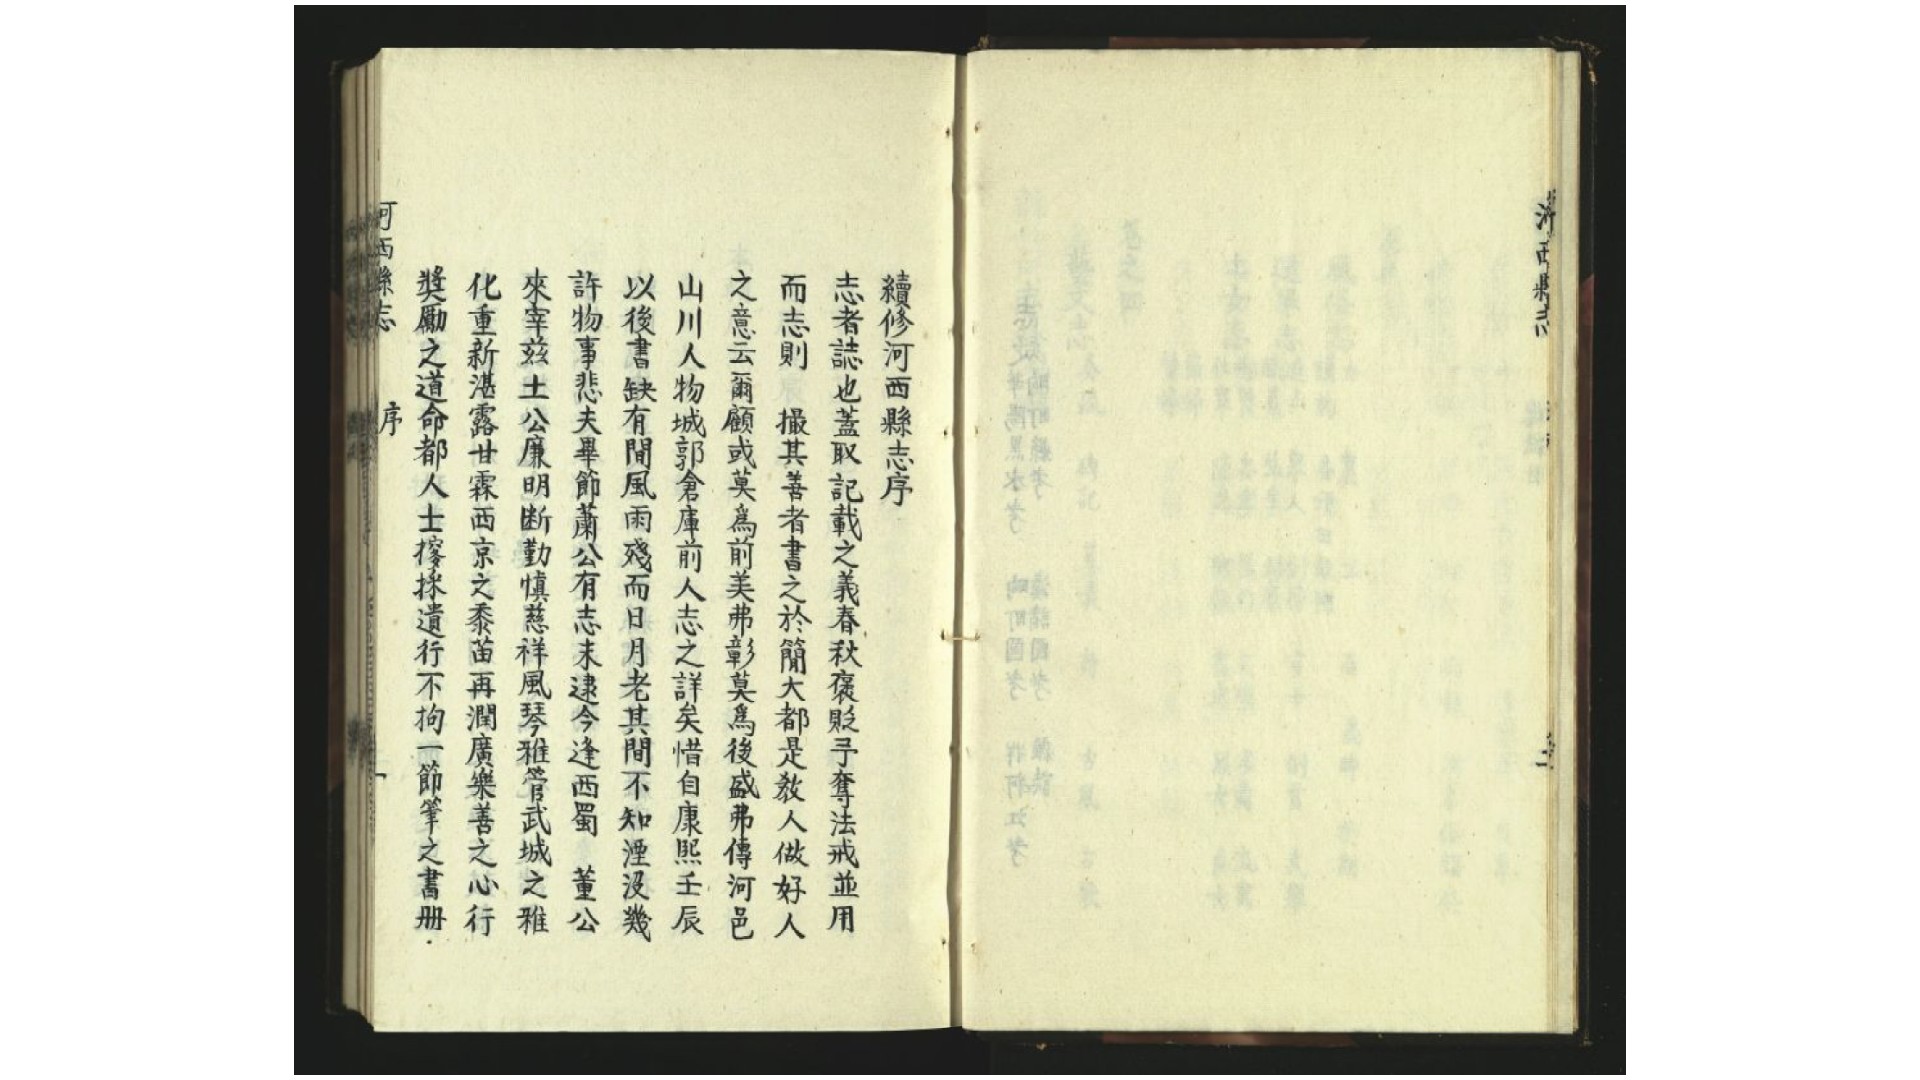 河西縣志
續修河西縣志序
志者誌也蓋取記載之義春秋褒貶予奪法戒並用
而志則撮其善者書之於簡大都是教人做好人
之意云爾顧或莫爲前美弗彰莫爲後盛弗傳河邑
山川人物城郭倉庫前人志之詳矣惜自康熙壬辰
以後書缺有間風雨殘而日月老其間不知湮沒幾
許物事悲夫畢節蕭公有志未逮今逢西蜀董公
來宰兹土公廉明断勤慎慈祥風琴雅管武城之雅
化重新湛露甘霖西京之黍苗再潤廣樂善之心行
奬勵之道命都人士搜採遺行不拘一節筆之書册
河西縣志 序 一